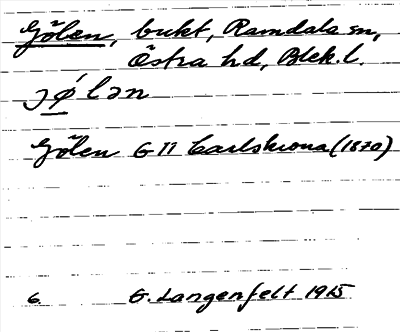 Gölen, bukt, Ramdala sn,
Östra hd, Blek. l.
jǿlən
Gölen G II Carlskrona (1870)
6. G. Langenfelt 1915